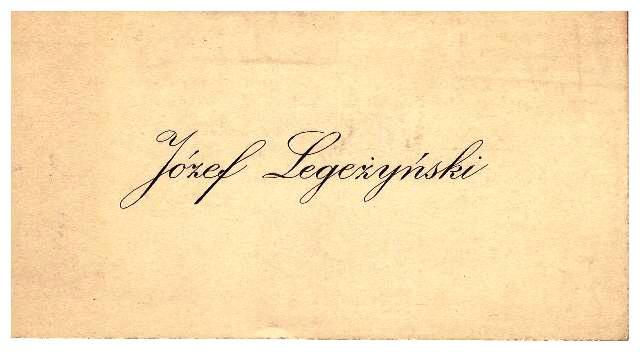 Józef Legeżyński